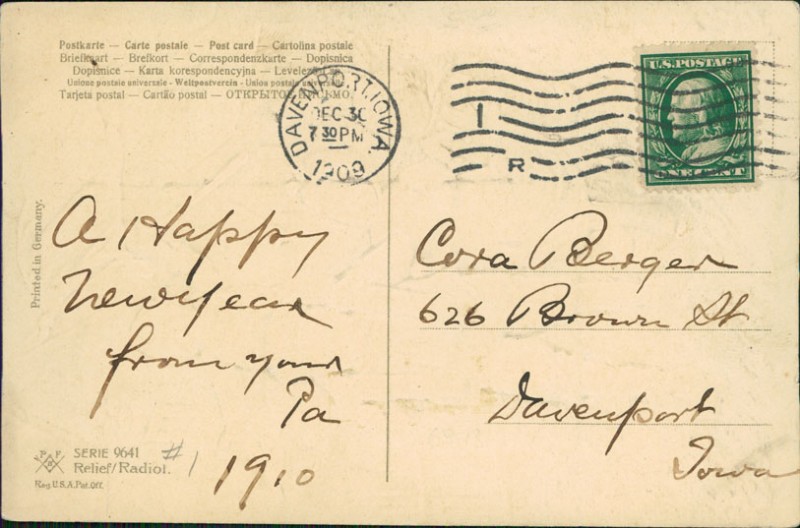 Postkarte — Carte postale — Post card — Cartolina postale
Briefkaart — Brefkort — Correspondenzkarte — Dopisnica
Dopisnice — Karta korespondencyjna — Levelező
Unione postale universale - Weltpostverein - Union postale
Tarjeta postal — Cartão postal — ОТКРЫТОЕ ПИСЬМО.
DAVENPORT, IOWA.
DEC 30
7 30 PM
1909
1
R
U.S. POSTAGE
ONE CENT
Printed in Germany.
A Happy
New year
from your
Pa
1910
Cora Berger
626 Brown St
Davenport
Iowa
P F
SERIE 9641
Relief/Radiol.
Reg U.S.A. Pat. Off.
#1